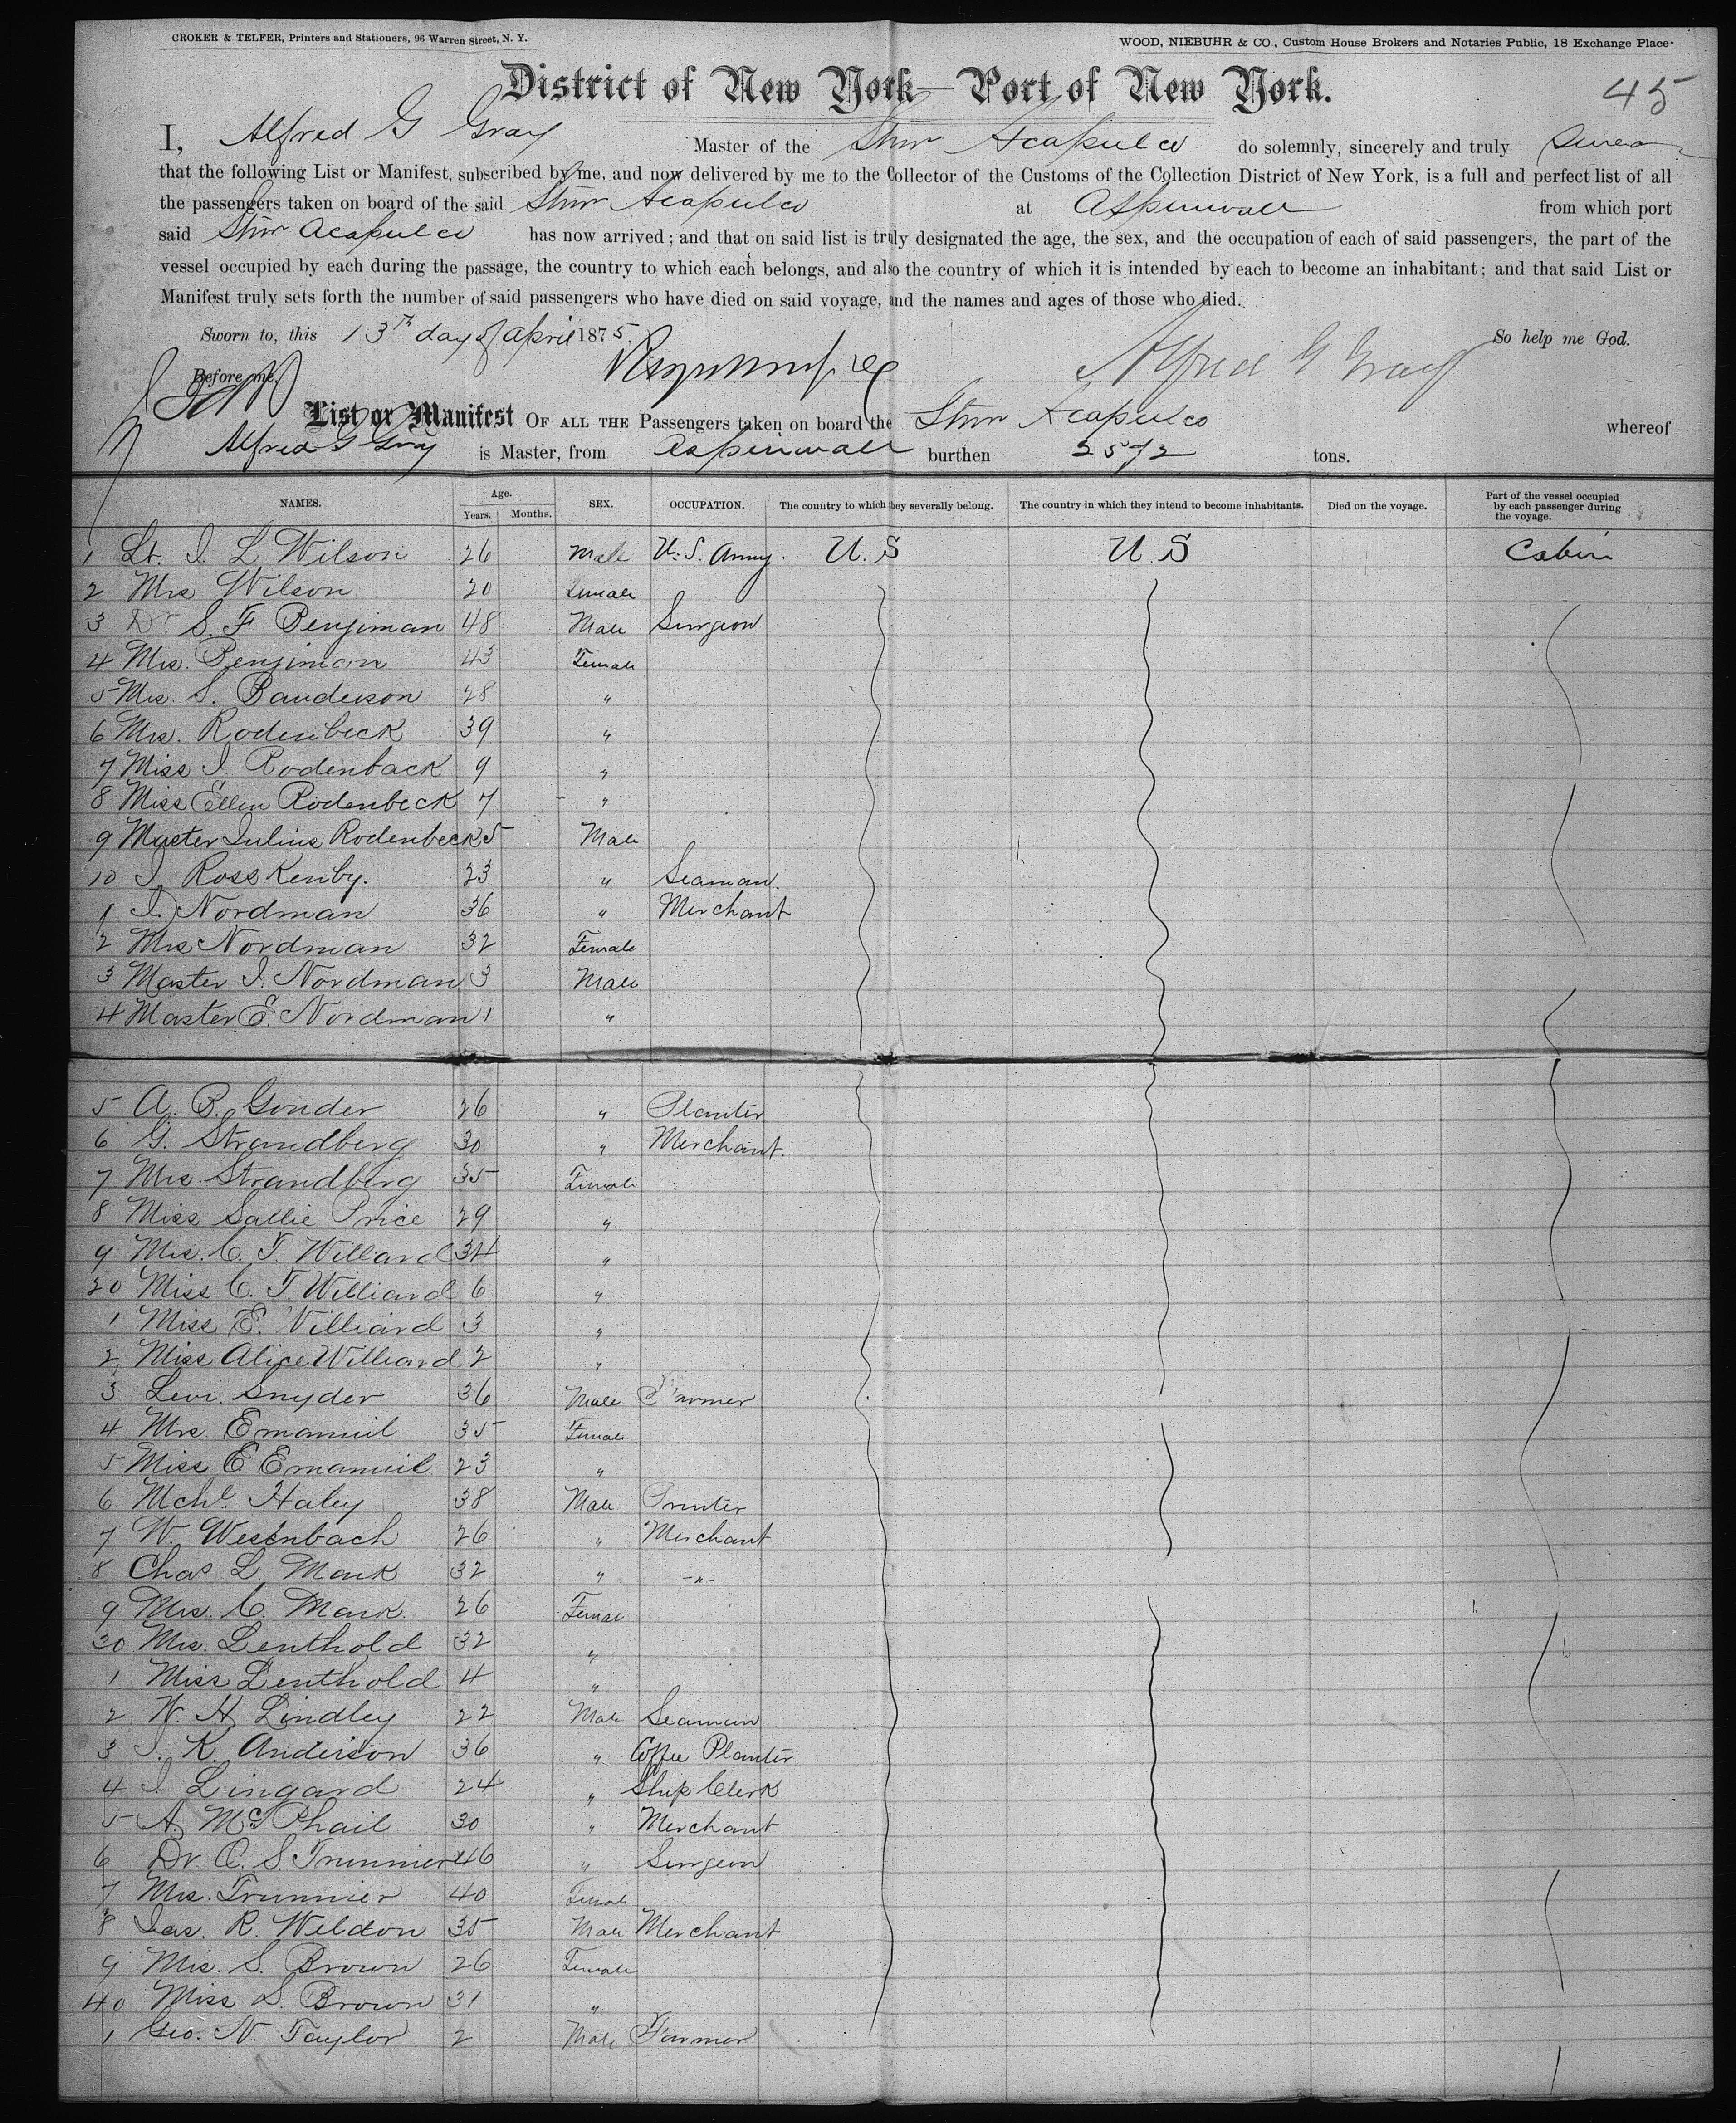 CROKER & TELFER, Printers and Stationers, 96 Warren Street, N. Y.
WOOD, NIEBUHR & CO., Custom House Brokers and Notaries Public, 18 Exchange Place.
District of New York—Port of New York.
45
I, Alfred G Gray Master of the Stmr Acapulco do solemnly, sincerely and truly swear
that the following List or Manifest, subscribed by me, and now delivered by me to the Collector of the Customs of the Collection District of New York, is a full and perfect list of all
the passengers taken on board of the said Stmr Acapulco at Aspinwall from which port
said Stmr Acapulco has now arrived; and that on said list is truly designated the age, the sex, and the occupation of each of said passengers, the part of the
vessel occupied by each during the passage, the country to which each belongs, and also the country of which it is intended by each to become an inhabitant; and that said List or
Manifest truly sets forth the number of said passengers who have died on said voyage, and the names and ages of those who died.
Sworn to, this 13th day of April 1875. So help me God.
Before me, Alfred G Gray
List or Manifest OF ALL THE Passengers taken on board the Stmr Acapulco whereof
Alfred G Gray is Master, from Aspinwall burthen 2572 tons.
NAMES. Age. Years. Months. SEX. OCCUPATION. The country to which they severally belong. The country in which they intend to become inhabitants. Died on the voyage. Part of the vessel occupied by each passenger during the voyage.
1 Lt. I. L Wilson 26 Male U.S. Army. U.S U.S Cabin
2 Mrs Wilson 20 Female
3 Dr. S. F Benjiman 48 Male Surgeon
4 Mrs. Benjiman 43 Female
5 Mrs. S. Bauderson 28 "
6 Mrs. Rodenbeck 39 "
7 Miss I. Rodenback 9 "
8 Miss Ellen Rodenbeck 7 "
9 Master Julius Rodenbeck 5 Male
10 I. Ross Kenby. 23 " Seaman.
1 I. Nordman 36 " Merchant
2 Mrs Nordman 32 Female
3 Master I. Nordman 3 Male
4 Master E. Nordman 1 "
5 A. B. Gonder 26 " Planter
6 G. Strandberg 30 " Merchant.
7 Mrs Strandberg 35 Female
8 Miss Sallie Price 29 "
9 Mrs. C. T. Willard 34 "
20 Miss C. T. Williard 6 "
1 Miss E. Williard 3 "
2 Miss Alice Williard 2 "
3 Levi Snyder 36 Male Farmer
4 Mrs Emanuil 35 Female
5 Miss E Emanuil 23 "
6 Mchl. Haley 38 Male Printer
7 W. Wesenbach 26 " Merchant
8 Chas L. Mark 32 " -"-
9 Mrs. C. Mark. 26 Femae
30 Mrs. Lenthold 32 "
1 Miss Lenthold 4 "
2 W. H. Lindley 22 Male Seaman
3 I. K. Anderson 36 " Coffee Planter
4 I Lingard 24 " Ship Clerk
5 A. McPhail 30 " Merchant
6 Dr. C. S. Trunnier 46 " Surgeon
7 Mrs. Trunnier 40 Female
8 Jas. R. Weldon 35 Male Merchant
9 Mrs. S. Brown 26 Female
40 Miss S. Brown 31 "
1 Geo. N. Taylor 2 Male Farmer